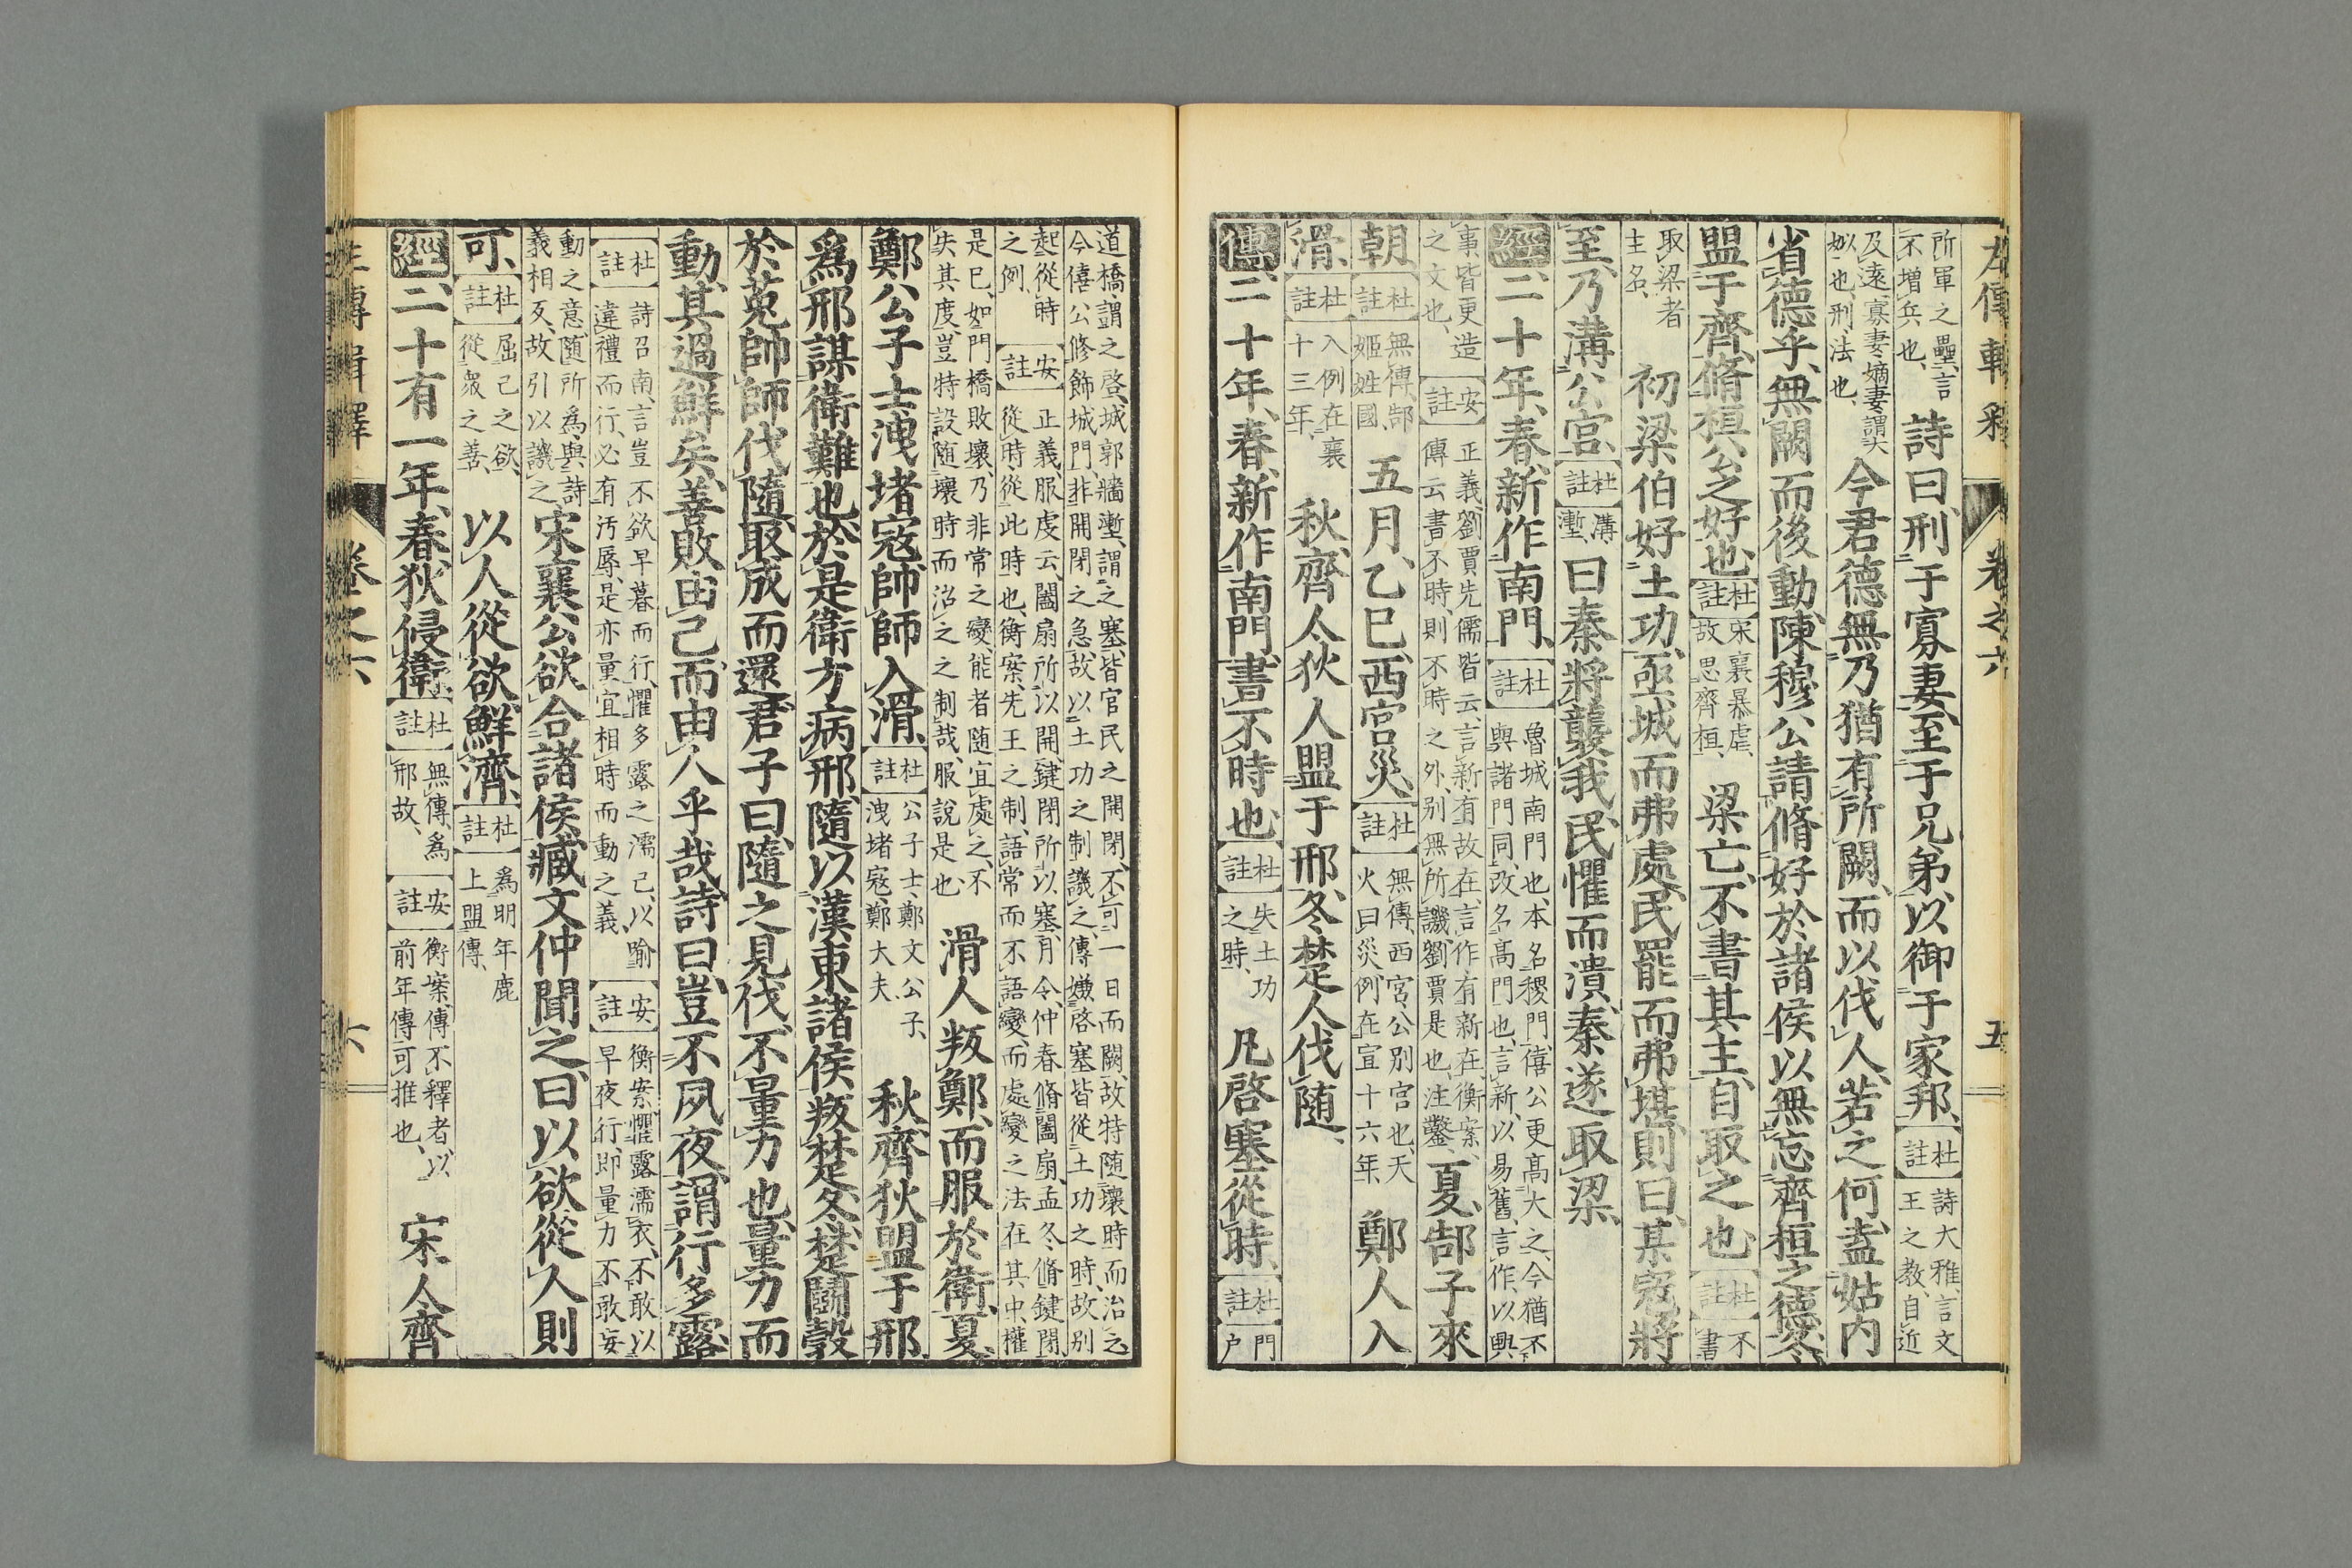 左傳輯釋 卷之六 五
所軍之壘、言不增兵也、詩曰、刑于寡妻、至于兄弟、以御于家邦、杜註 詩大雅、言文王之教、自近
及遠、寡妻、嫡妻、謂大姒也、刑、法也、今君德無乃猶有所闕、而以伐人、若之何、盍姑内
省德乎、無闕而後動、陳穆公請脩好於諸侯、以無忘齊桓之德、冬、
盟于齊、脩桓公之好也、杜註 宋襄暴虐、故思齊桓、梁亡、不書其主、自取之也、杜註 不書
取梁者主名、初梁伯好土功、亟城而弗處、民罷而弗堪、則曰、某寇將
至、乃溝公宮、杜註 溝塹、曰秦將襲我、民懼而潰、秦遂取梁、
經二十年、春、新作南門、杜註 魯城南門也、本名稷門、僖公更高大之、今猶不與諸門同、改名高門也、言新、以易舊、言作、以興
事、皆更造之文也、安註 正義、劉賈先儒皆云、言新有故在、言作有新在、衡案、傳云書不時、則不時之外、別無所譏、劉賈是也、注鑿、夏、郜子來
朝、杜註 無傳、郜姬姓國、五月、乙巳、西宮災、杜註 無傳、西宮、公別宮也、天火曰災、例在宣十六年、鄭人入
滑、杜註 入例在襄十三年、秋、齊人狄人盟于邢、冬、楚人伐隨、
傳二十年、春、新作南門、書不時也、杜註 失土功之時、凡啓塞從時、杜註 門戶
道橋、謂之啓、城郭牆塹、謂之塞、皆官民之開閉、不可一日而闕、故特隨壞時而治之、今僖公修飾城門、非開閉之急、故以土功之制譏之、傳嫌啓塞皆從土功之時、故別
起從時之例、安註 正義、服虔云、闔扇所以開、鍵閉所以塞、月令、仲春脩闔扇、孟冬脩鍵閉、從時、從此時也、衡案、先王之制、語常而不語變、而處變之法在其中、權
是已、如門橋敗壞、乃非常之變、能者隨宜處之、不失其度、豈特設隨壞時而治之之制哉、服說是也、滑人叛鄭、而服於衛、夏、
鄭公子士洩堵寇、帥師入滑、杜註 公子士、鄭文公子、洩堵寇、鄭大夫、秋、齊狄盟于邢、
爲邢謀衛難也、於是衛方病邢、隨以漢東諸侯、叛楚、冬、楚鬭穀
於菟、帥師伐隨、取成而還、君子曰、隨之見伐、不量力也、量力而
動、其過鮮矣、善敗由己、而由人乎哉、詩曰、豈不夙夜、謂行多露、
杜註 詩召南、言豈不欲早暮而行、懼多露之濡己、以喻違禮而行、必有汚辱、是亦量宜相時而動之義、安註 衡案、懼露濡衣、不敢以早夜行、即量力不敢妄
動之意、隨所爲、與詩義相反、故引以譏之、宋襄公欲合諸侯、臧文仲聞之曰、以欲從人則
可、杜註 屈己之欲、從衆之善、以人從欲、鮮濟、杜註 爲明年鹿上盟傳、
經二十有一年、春、狄侵衛、杜註 無傳、爲邢故、安註 衡案、傳不釋者、以前年傳可推也、宋人齊
左傳輯釋 卷之六 六